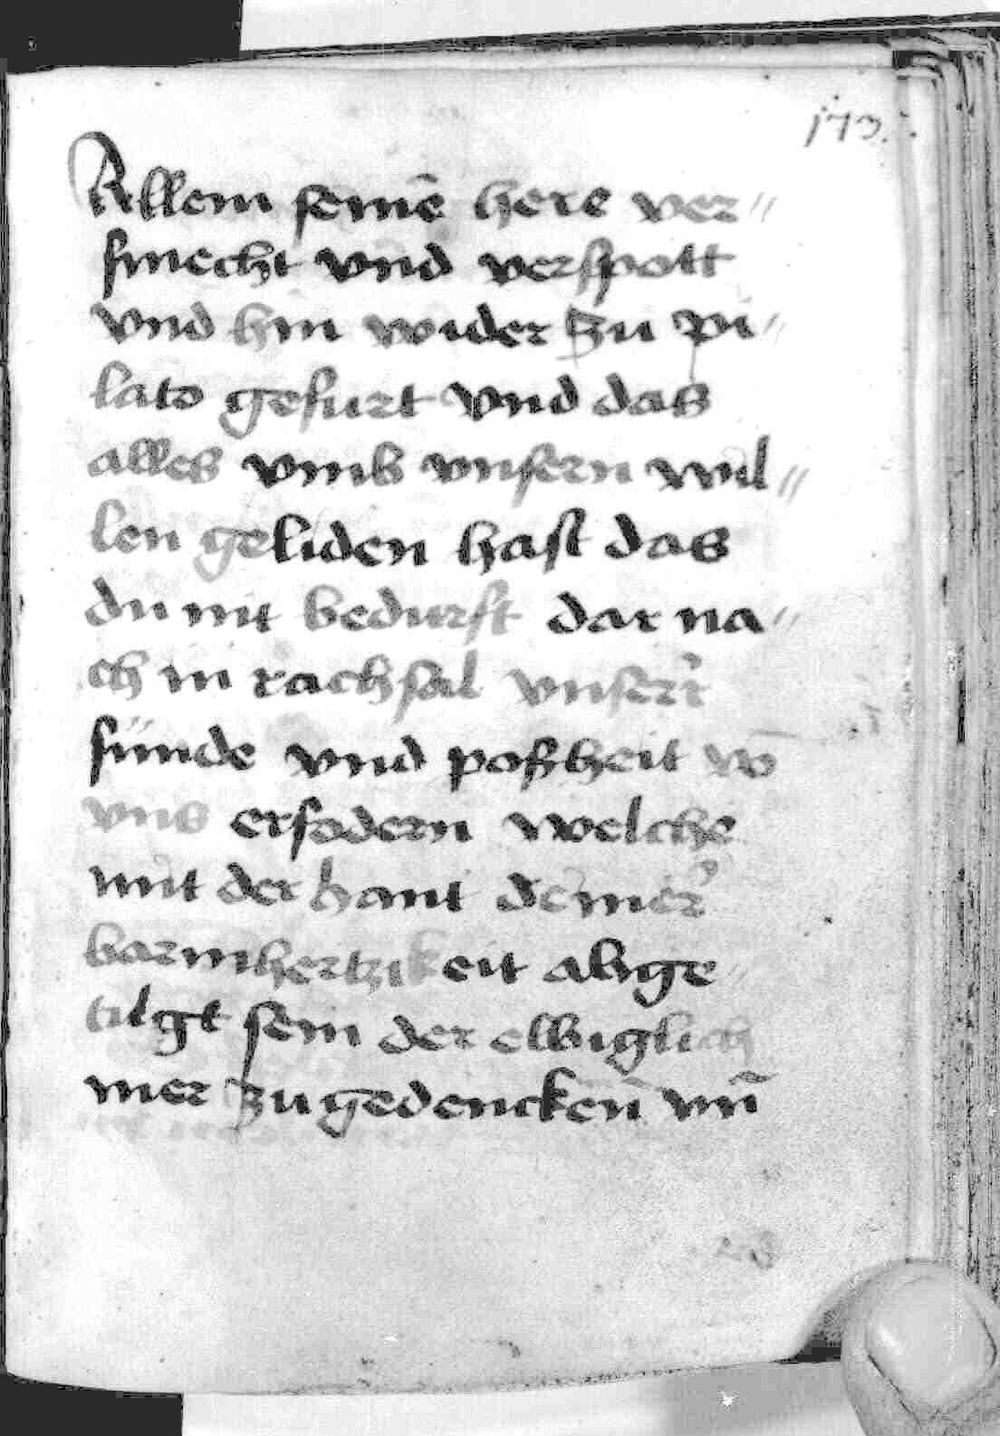 173.
Allem seinē here ver〃
smecht vnd verspott
vnd hin wider zu pi〃
lato gefurt vnd das
alles vmb vnsern wil〃
len geliden hast das
du nit bedurft dar na〃
ch in rachsal vnserr
sünde vnd poßheit vō
vns erfodern welche
mit der hant deiner
barmhertzikeit abge〃
tilgt sein der elbiglich
mer zu gedencken vn̄